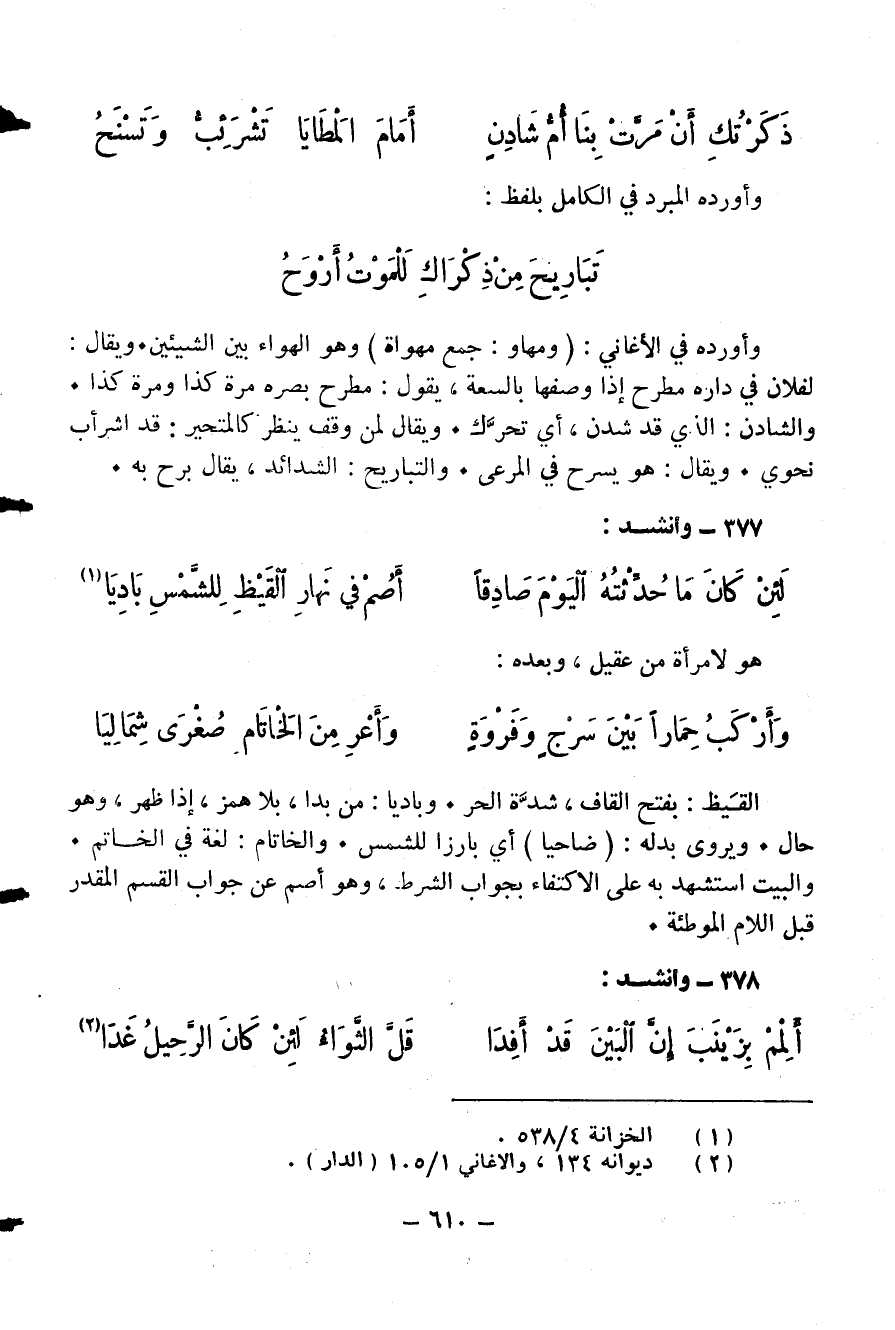 ذَكَرْتُكِ أَنْ مَرَّتْ بِنَا أُمُّ شَادِنٍ أَمَامَ المَطَايَا تَشْرَئِبُّ وَتَسْنَحُ
وأورده المبرد في الكامل بلفظ :
تَبَارِيحَ مِنْ ذِكْرَاكِ لَلْمَوْتُ أَرْوَحُ
وأورده في الأغاني : ( ومهاو : جمع مهواة ) وهو الهواء بين الشيئين٠ويقال :
لفلان في داره مطرح إذا وصفها بالسعة ، يقول : مطرح بصره مرة كذا ومرة كذا ٠
والشادن : الذي قد شدن ، أي تحرَّك ٠ ويقال لمن وقف ينظر كالمتحير : قد اشرأب
نحوي ٠ ويقال : هو يسرح في المرعى ٠ والتباريح : الشدائد ، يقال برح به ٠
٣٧٧ – وانشــد :
لَئِنْ كَانَ مَا حُدِّثْتُهُ اليَوْمَ صَادِقاً أَصُمْ فِي نَهَارِ القَيْظِ لِلشَّمْسِ بَادِيَا(١)
هو لامرأة من عقيل ، وبعده :
وَأَرْكَبُ حِمَاراً بَيْنَ سَرْجٍ وَفَرْوَةٍ وَأَعْرِ مِنَ الخَاتَامِ صُغْرَى شِمَالِيَا
القَيظ : بفتح القاف ، شدَّة الحر ٠ وباديا : من بدا ، بلا همز ، إذا ظهر ، وهو
حال ٠ ويروى بدله : ( ضاحيا ) أي بارزا للشمس ٠ والخاتام : لغة في الخــاتم ٠
والبيت استشهد به على الاكتفاء بجواب الشرط ، وهو أصم عن جواب القسم المقدر
قبل اللام الموطئة ٠
٣٧٨ – وانشــد :
أَلْمِمْ بِزَيْنَبَ إِنَّ البَيْنَ قَدْ أَفِدَا قَلَّ الثَّوَاءُ لَئِنْ كَانَ الرَّحِيلُ غَدَا(٢)
(١) الخزانة ٥٣٨/٤ .
(٢) ديوانه ١٣٤ ، والاغاني ١٠٥/١ ( الدار ) .
– ٦١٠ –